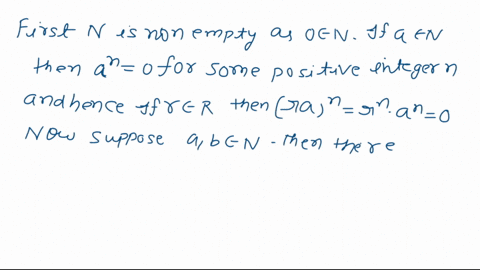 First N is non empty as 0∈N. If a∈N
then aⁿ=0 for some positive integer n
and hence If r∈R then (ra)ⁿ=rⁿ·aⁿ=0
Now suppose a,b∈N - then there